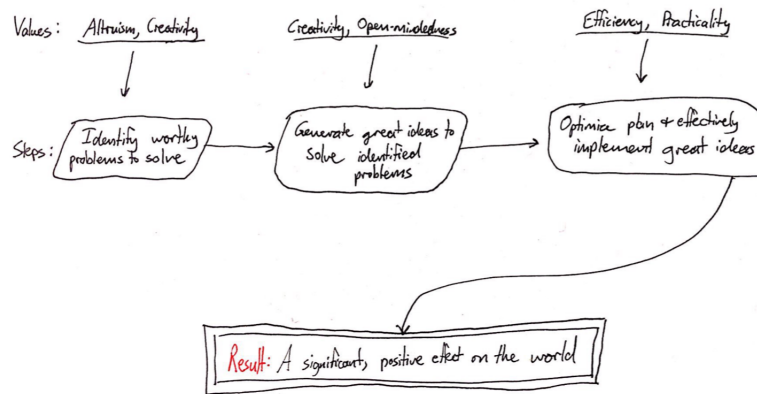 Values: Altruism, Creativity Creativity, Open-mindedness Efficiency, Practicality
Steps:
Identify worthy
problems to solve
Generate great ideas to
solve identified
problems
Optimize plan + effectively
implement great ideas
Result: A significant, positive effect on the world